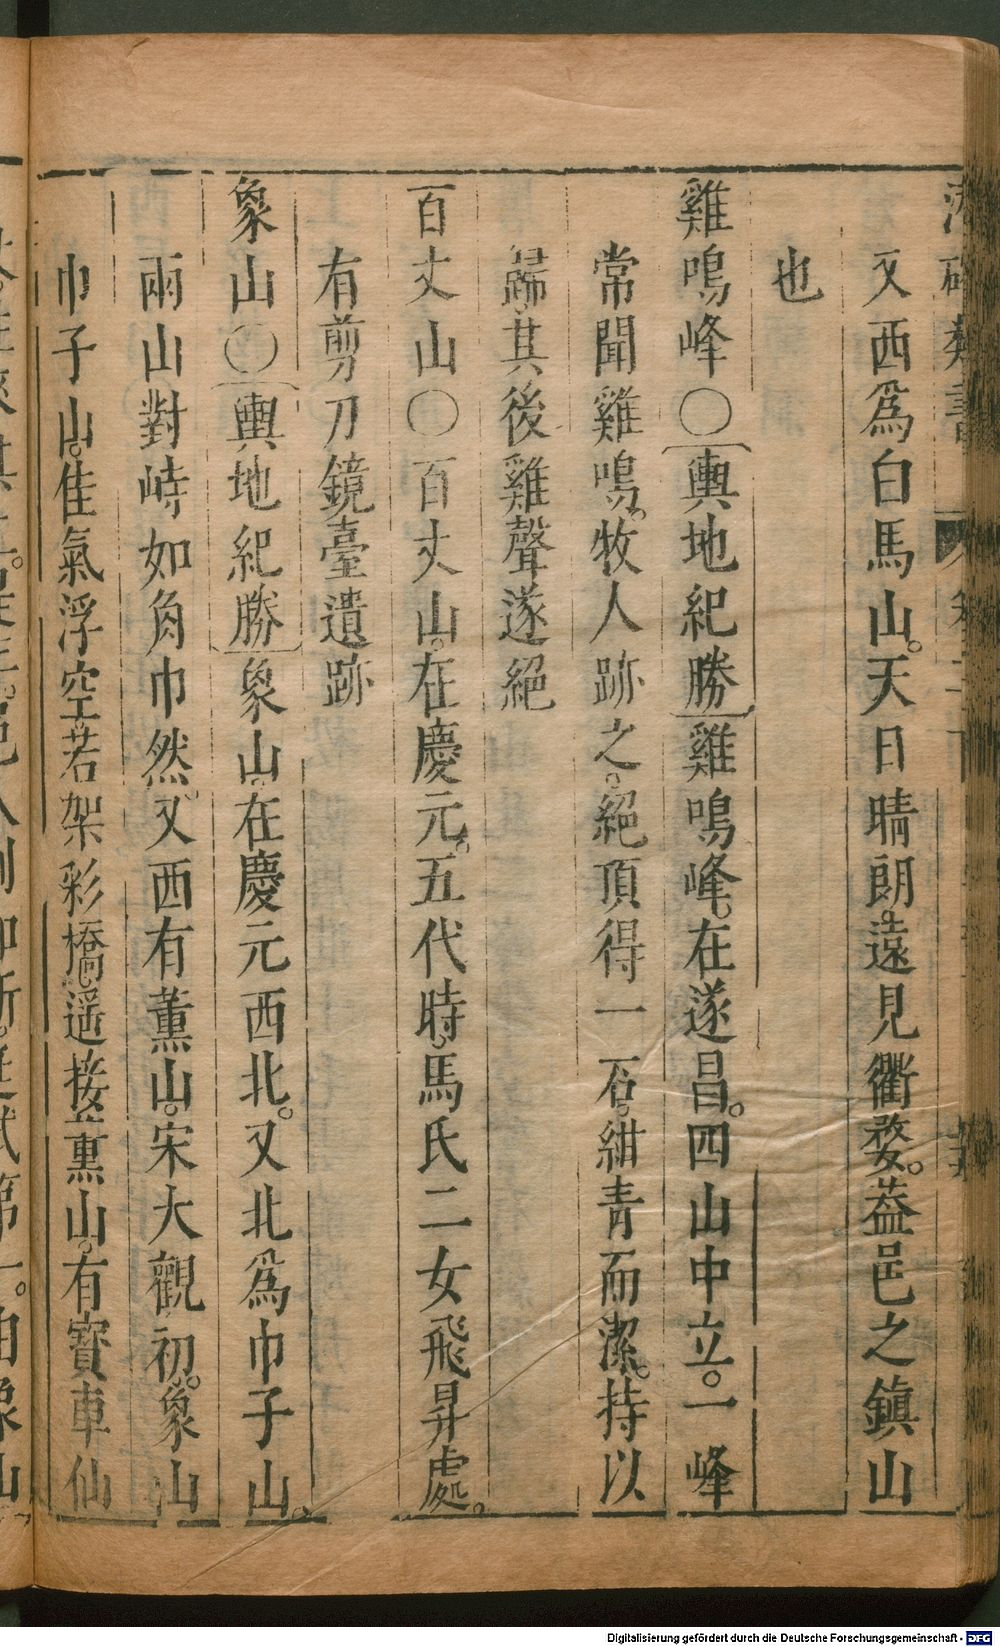 又西爲白馬山。天日晴朗。遠見衢婺。葢邑之鎮山
也
雞鳴峰〇輿地紀勝雞鳴峰。在遂昌。四山中立。一峰
常聞雞鳴。牧人跡之。絕頂得一石。紺青而潔。持以
歸。其後雞聲遂絕
百丈山〇百丈山。在慶元。五代時。馬氏二女飛昇處。
有剪刀鏡臺遺跡
象山〇輿地紀勝象山。在慶元西北。又北爲巾子山。
兩山對峙如角巾然。又西有薰山。宋大觀初。象山
巾子山。佳氣浮空。若架彩橋。遥接薰山。有寳車仙
Digitalisierung gefördert durch die Deutsche Forschungsgemeinschaft - DFG